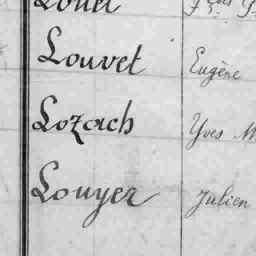 Louvet Eugène
Lozach Yves
Louyer Julien